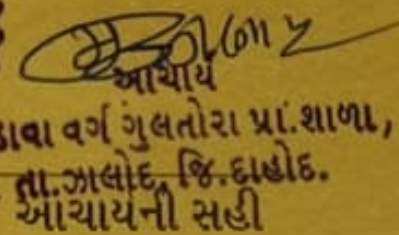 આચાર્ય
વા વર્ગ ગુલતોરા પ્રા.શાળા,
તા.ઝાલોદ, જિ.દાહોદ.
આચાર્યની સહી